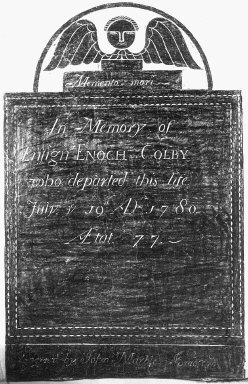 Memento mori
In Memory of
Ensign ENOCH COLBY
who departed this life
July ye 10th AD 1780
Ætat 77.
Engraved by John